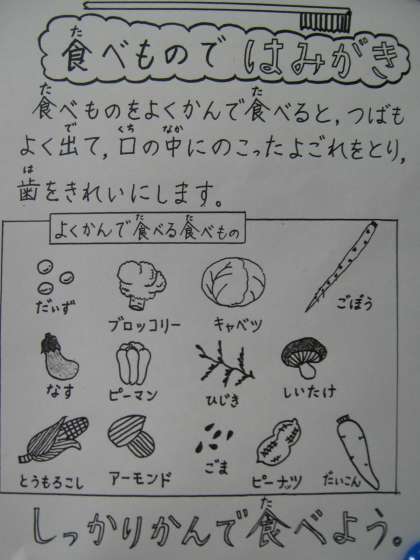 食べものではみがき
食べものをよくかんで食べると，つばも
よく出て，口の中にのこったよごれをとり，
歯をきれいにします。
よくかんで食べる食べもの
だいず
ブロッコリー
キャベツ
ごぼう
なす
ピーマン
ひじき
しいたけ
とうもろこし
アーモンド
ごま
ピーナッツ
だいこん
しっかりかんで食べよう。